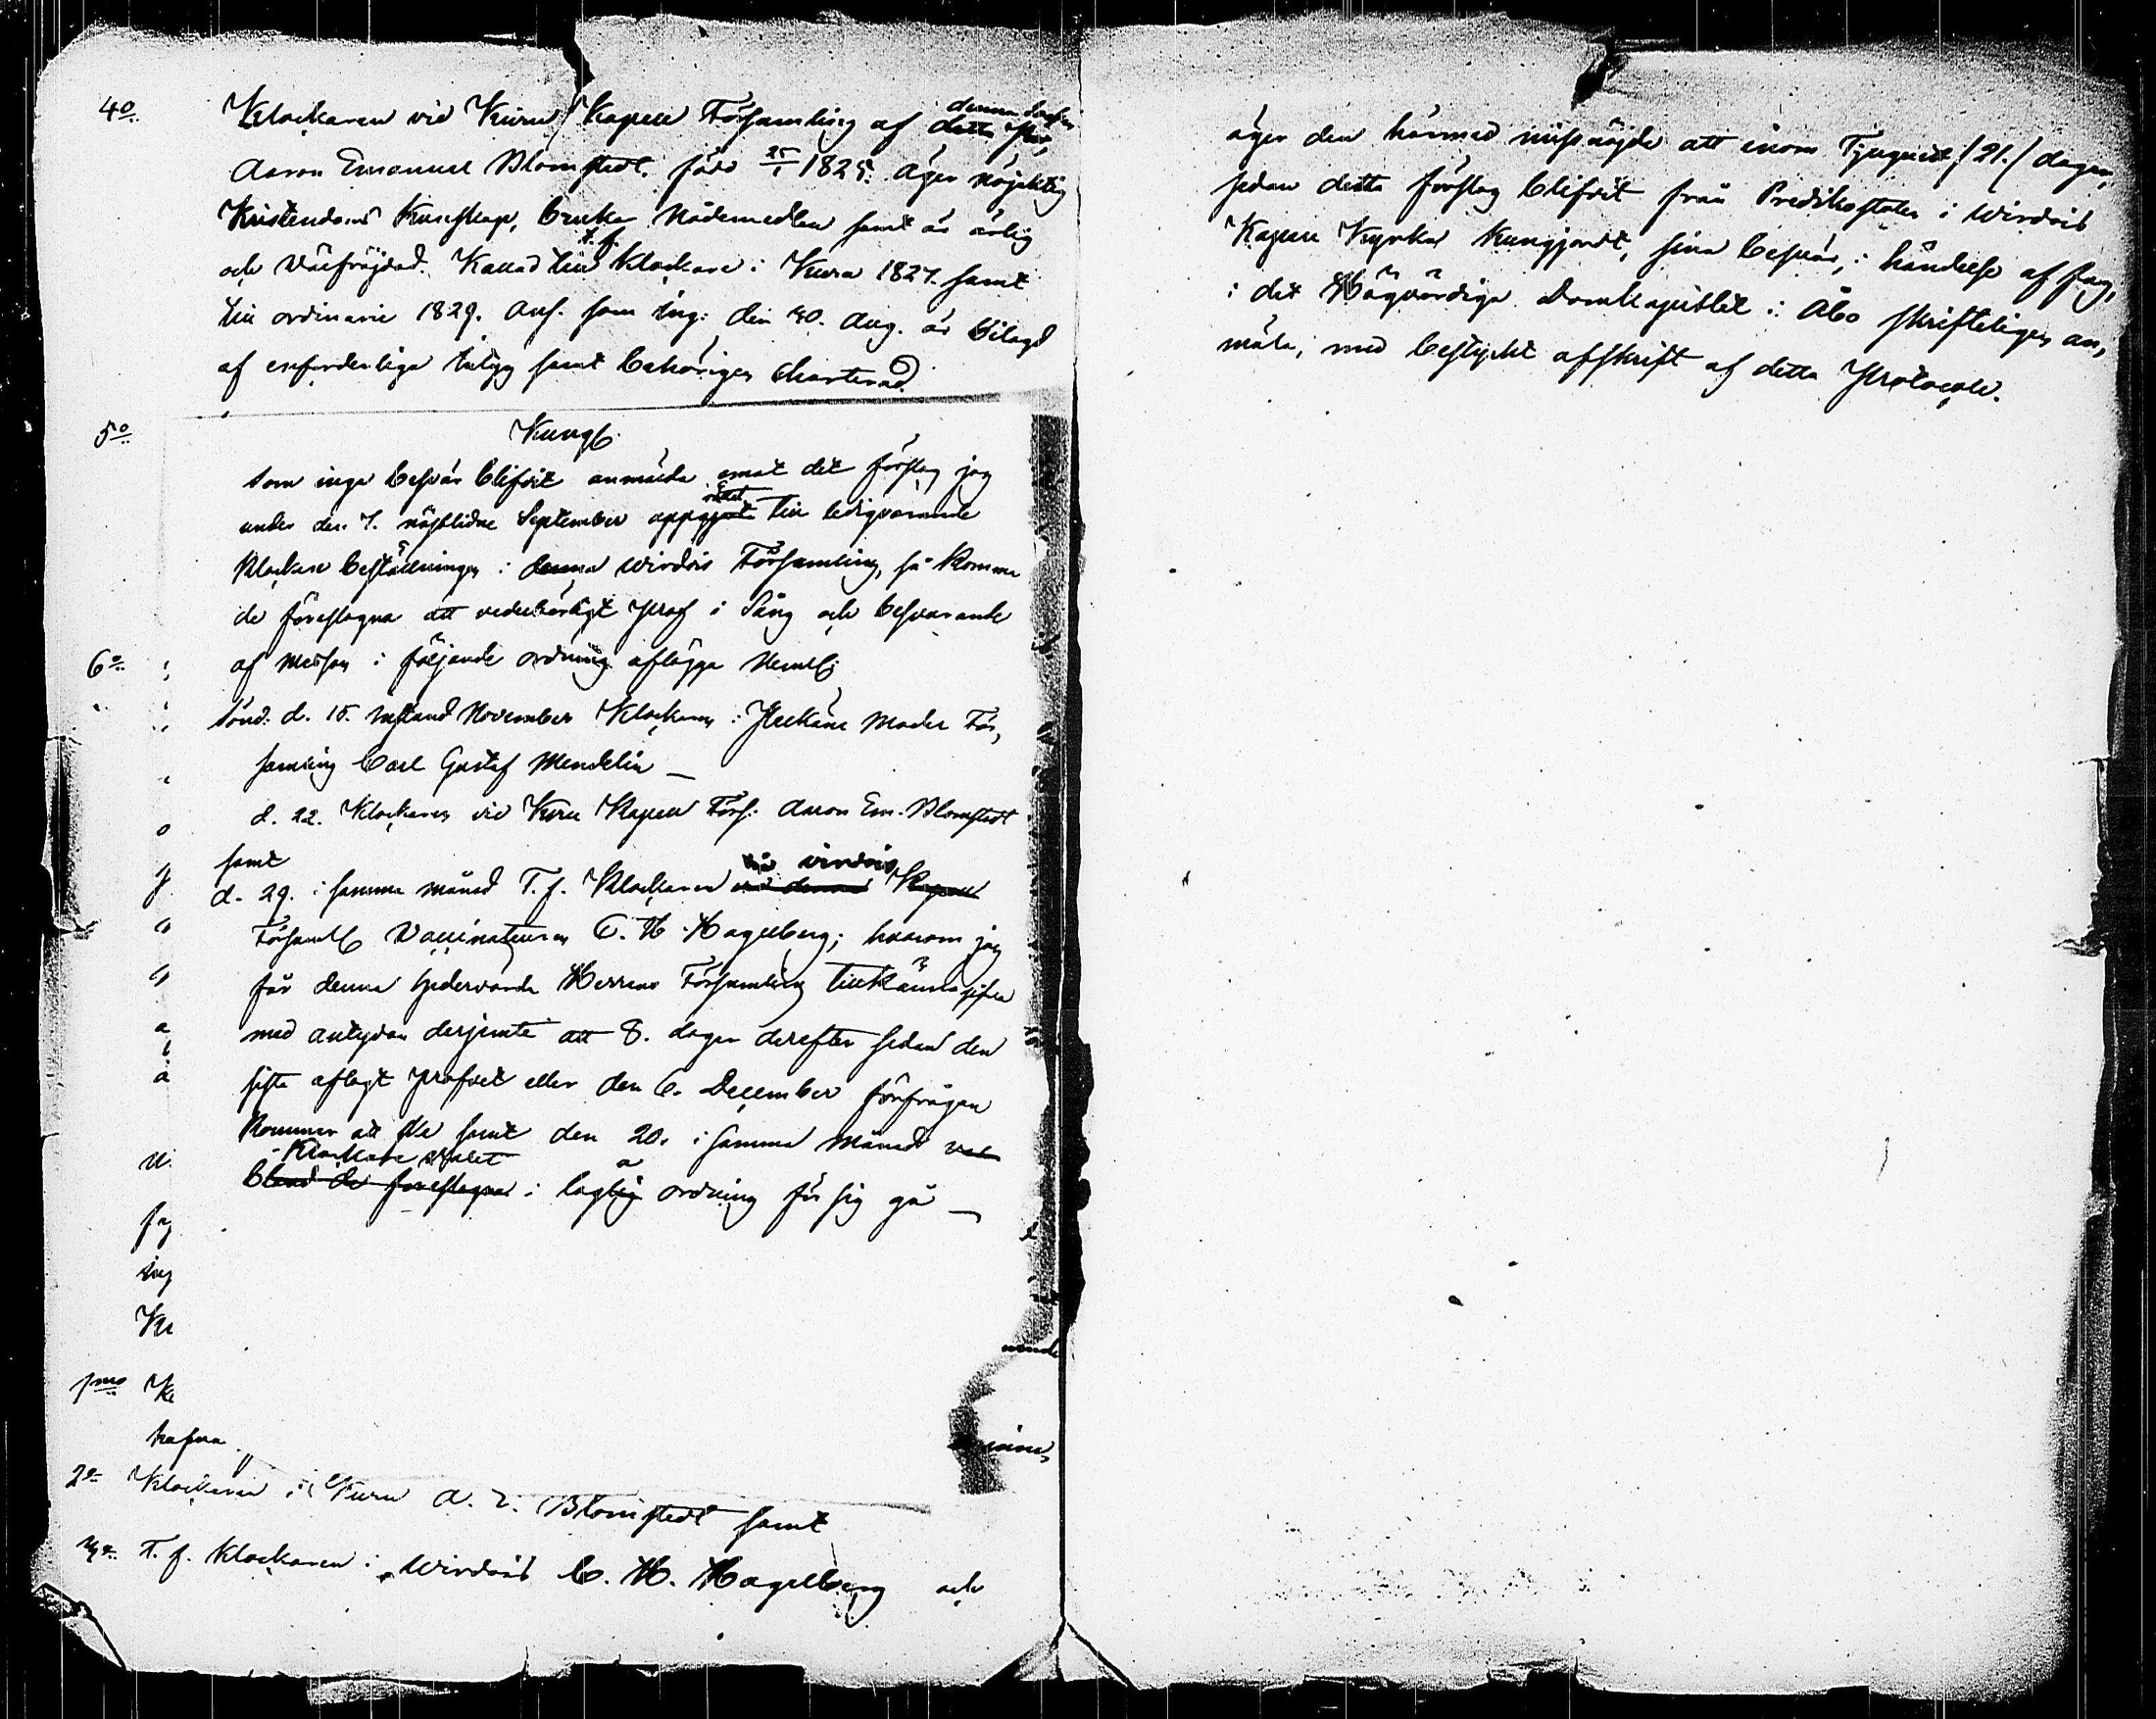 4o Klockaren vid Kuru Kapell Församling af detta
denna Socken
Aaron Emanuel Blomstedt, född 25/1 1825. Äger nöjaktig
Kristendoms Kunskap, brukar Nådemedlen samt är ärlig
och välfräjdad. Kallad till t. f. Klockare i Kuru 1827. samt
till ordinarie 1829. Ans. som ing: den 30. Aug. är bilagd
af erforderliga betyg samt behörigen charterad.
5o Kungl.
Som inga besvär blifvit anmälda emot det förslag jag
under den 7. nästlidne September upprättat till ledigvarande
Klockare beställningen i denna Wirdois Församling, så komma
de föreslagna att vederbörligt prof i Sång och besvarande
6o af messan i följande ordning aflägga Neml.
Sönd. d. 15. instund. November Klockaren i Pelkäne Moder För,
samling Carl Gustaf Mendelin —
d. 22. Klockaren vid Kuru Kapell Förs. Aaron Em. Blomstedt
samt
d. 29. i samma månad T. f. Klockaren vid denna Kapell
vid virdois
Församl Vaccinateuren C. H. Hagelberg; hvarom jag
för denna hedervärda Herrens Församling tillkännagifva
med antydan derjemte att 8. dagar derefter sedan den
sista aflagt profvet eller den 6. December förfrågan
kommer att ske samt den 20. i samma månad val
Klockare valet
bland de föreslagna i laglig ordning för sig gå —
fag
ing
Kl
1mo Kl
hafva
2o Klockaren i Kuru A. E. Blomstedt samt
T. f. Klockaren i Wirdois C. H. Hagelberg och
äger den härmed missnöjde att inom Tjuguett /21./ dagar,
sedan detta förslag blifvit från Predikostolen i Wirdois
Kapell Kyrka kungjordt, sina besvär, i händelse af fog,
i det Högvördiga Domkapitlet i Åbo skrifteligen an,
mäla, med bestyckt afskrift af detta Protocoll.